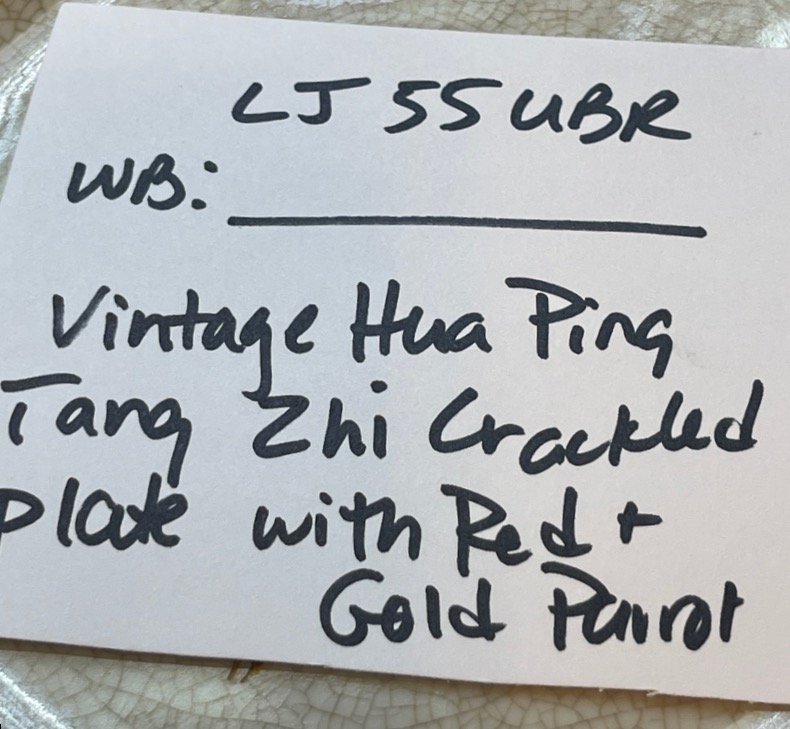 LJ55UBR
WB:
Vintage Hua Ping
Tang Zhi Crackled
Plate with Red +
Gold Parrot